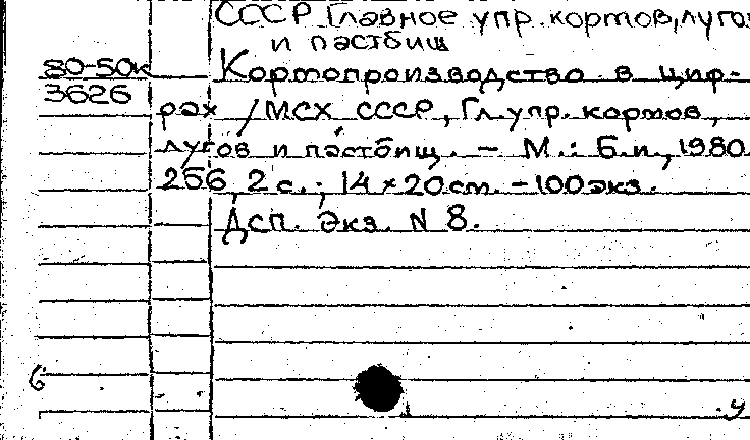 СССР. Главное упр. кормов, луго
и пастбищ
80-50к Кормопроизводство в циф-
3626 рах / МСХ СССР, Гл. упр. кормов,
лугов и пастбищ. – М.: Б.и., 1980
256, 2 с.; 14 × 20 см. – 100 экз.
Дсп. Экз. N 8.
б
.у